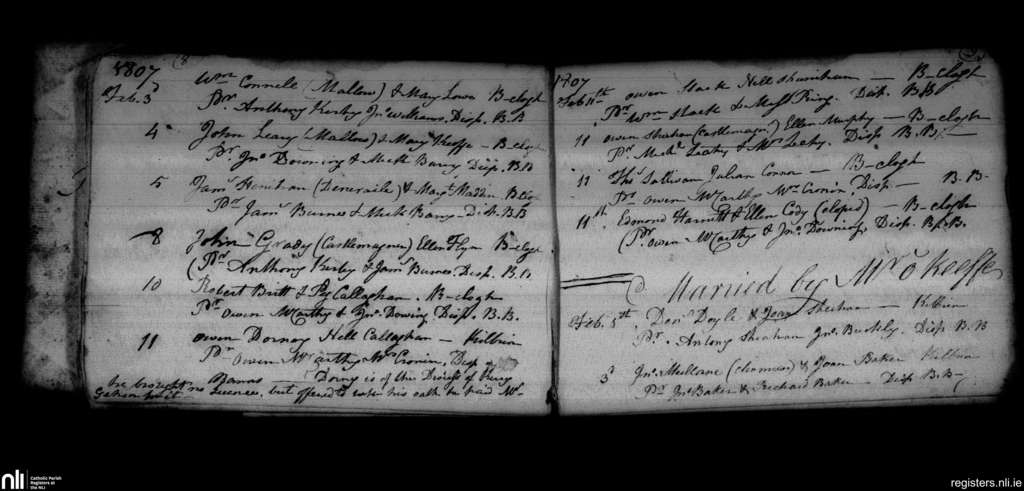 1807
Feb. 3 Wm Connele (Mallow) & Mary Lowe B-clogh
Pr. Anthony Kirby Jno Williams. Disp. B.B
4 John Leary (Mallow) & Mary Keeffe - B-clogh
Pr Jno Downing & Mick Barry Disp. B.B
5 Jams Henihan (Doneraile) & Margt Madden B-clo
Pr Jams Burnes & Mick Barry - Dis. B.B
8 John Grady (Castlemagner) Ellen Flyn B-clogh
(Pr Anthony Kirby & Jams Burnes Disp. B.B
10 Robert Britt & Peg Callaghan. B-clogh
Pr Owen McCarthy & Jno. Downing Disp. B.B.
11 Owen Dorney Nell Callaghan - Kilbrin
Pr Owen McCarthy Wm Cronin. Disp
Banns (Dorny is of the Diocess of Kerry
he brought no Licence, but offered to take his oath he paid Mr

1807
Feb 11th Owen Hack Nell Shinihan - B-clogh
Pr Wm Hack & Ring. Dis. BB
11 Owen Sheehan (Castlemagner) Ellen Murphy - B-clogh
Pr. Michl Leahy & Wm Leahy. Disp B.B. -
11 Thos Sullivan Julian Connor - B-clogh
Pr Owen McCarthy Wm Cronin, Disp - B.B-
11th Edmond Harnett & Ellen Cody (eloped) - B-clogh
(Pr. Owen McCarthy & Jno. Downing, Disp. B.B.
Married by Mr O Keeffe
Feb. 5th. Denis Doyle & Joan Sheehan - Kilbrin
Pr. Antony Sheahan Jno. Buckly. Disp B.B
Jno. Mullane & Joan Baker Kilbrin
Pr Jno Baker & Richard Baker - Disp B.B-
nli
Catholic Parish
Registers at
the NLI
registers.nli.ie